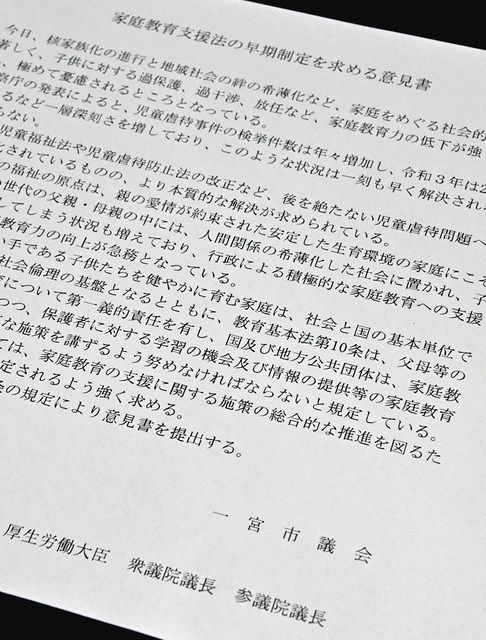 家庭教育支援法の早期制定を求める意見書
今日、核家族化の進行と地域社会の絆の希薄化など、家庭をめぐる社会的
著しく、子供に対する過保護、過干渉、放任など、家庭教育力の低下が強
、極めて憂慮されるところとなっている。
察庁の発表によると、児童虐待事件の検挙件数は年々増加し、令和３年は2
るなど一層深刻さを増しており、このような状況は一刻も早く解決された
らない。
児童福祉法や児童虐待防止法の改正など、後を絶たない児童虐待問題へ
化されているものの、より本質的な解決が求められている。
の福祉の原点は、親の愛情が約束された安定した生育環境の家庭にこそ
の世代の父親・母親の中には、人間関係の希薄化した社会に置かれ、子
してしまう状況も増えており、行政による積極的な家庭教育への支援
教育力の向上が急務となっている。
い手である子供たちを健やかに育む家庭は、社会と国の基本単位で
社会倫理の基盤となるとともに、教育基本法第10条は、父母等の
育について第一義的責任を有し、国及び地方公共団体は、家庭教
つつ、保護者に対する学習の機会及び情報の提供等の家庭教育
な施策を講ずるよう努めなければならないと規定している。
ては、家庭教育の支援に関する施策の総合的な推進を図るた
定されるよう強く求める。
条の規定により意見書を提出する。
一宮市議会
厚生労働大臣　衆議院議長　参議院議長